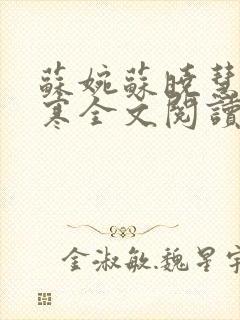 蘇婉蘇曉慧
寒全文閱讀
金淑敏.魏星宇